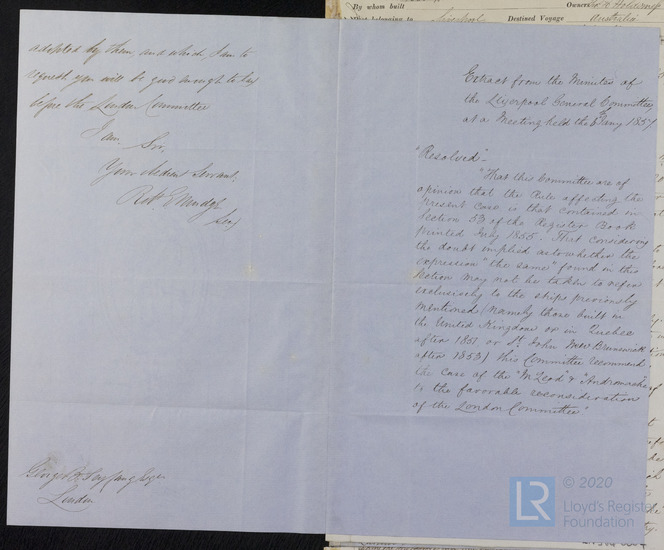 adopted by them, and which, I am to
request you will be good enough to lay
before the London Committee
I am,
Sir,
Your Servant,
Secy
George
London
By whom built
Owners
belonging to
Liverpool
Destined Voyage
Australia
Extract from the Minutes of
the Liverpool General Committee
at a Meeting held the Jany 1857
"Resolved"-
"That this Committee are of
opinion that the Rule affecting the
present case is that contained in
Section 53 of the Register Book
printed July 1855. That considering
the doubt implied as to whether the
expression "the same" found in this
Section may not be taken to refer
exclusively to the ships previously
mentioned (namely those built in
the United Kingdom or in Quebec
after 1851 or St. John New Brunswick
after 1853) this Committee recommend
the case of the "McLeod" & "Andromache"
to the favorable reconsideration
of the London Committee"
LR
© 2020
Lloyd's Register
Foundation